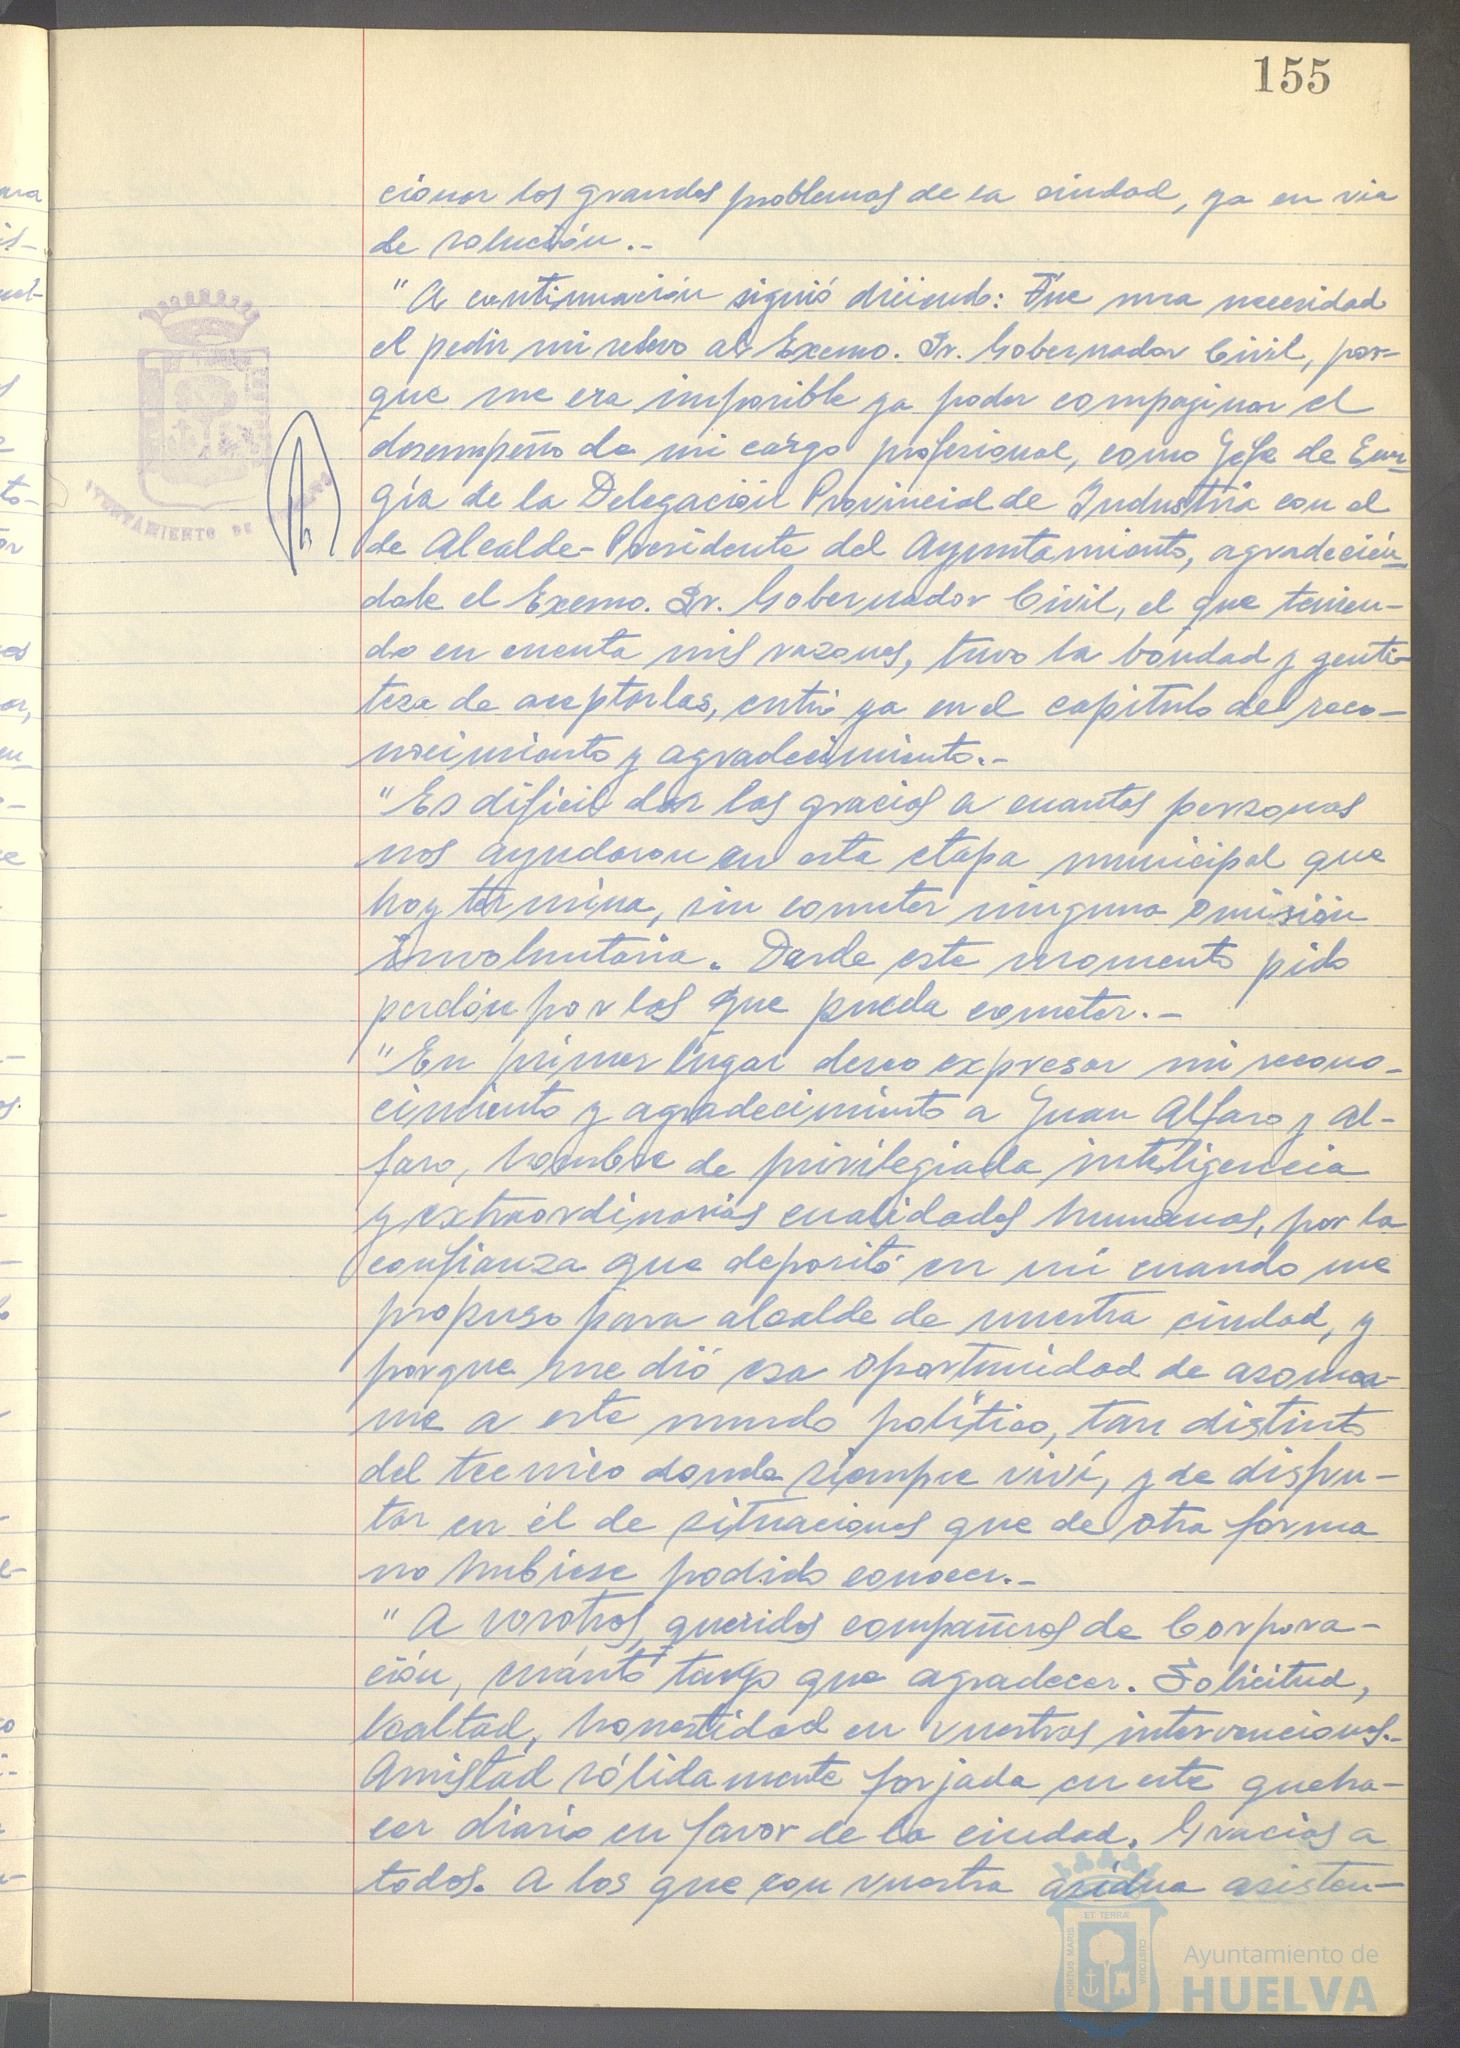 155
cionar los grandes problemas de la ciudad, ya en via
de solución.-
"A continuación siguió diciendo: Fue una necesidad
el pedir mi relevo al Excmo. Sr. Gobernador Civil, por-
que me era imposible ya poder compaginar el
desempeño de mi cargo profesional, como Jefe de Ener-
gía de la Delegación Provincial de Industria con el
de Alcalde-Presidente del Ayuntamiento, agradecién-
dole el Excmo. Sr. Gobernador Civil, el que tenien-
do en cuenta mis razones, tuvo la bondad y genti-
leza de aceptarlas, entró ya en el capítulo del reco-
nocimiento y agradecimiento.-
"Es difícil dar las gracias a cuantas personas
nos ayudaron en esta etapa municipal que
hoy termina, sin cometer ninguna omisión
involuntaria. Desde este momento pido
perdón por las que pueda cometer.-
"En primer lugar deseo expresar mi recono-
cimiento y agradecimiento a Juan Alfaro y Al-
faro, hombre de privilegiada inteligencia
y extraordinarias cualidades humanas, por la
confianza que depositó en mi cuando me
propuso para alcalde de nuestra ciudad, y
porque me dió esa oportunidad de asomar-
me a este mundo político, tan distinto
del tecnico donde siempre viví, y de disfru-
tar en él de situaciones que de otra forma
no hubiese podido conocer.-
"A vosotros, queridos compañeros de Corpora-
ción, cuánto tengo que agradecer. Solicitud,
lealtad, honestidad en vuestras intervenciones.-
Amistad sólidamente forjada en este queha-
cer diario en favor de la ciudad. Gracias a
todos. A los que con vuestra asídua asisten-
AYUNTAMIENTO DE
PORTUS MARIS
ET TERRAE
CUSTODIA
Ayuntamiento de
HUELVA